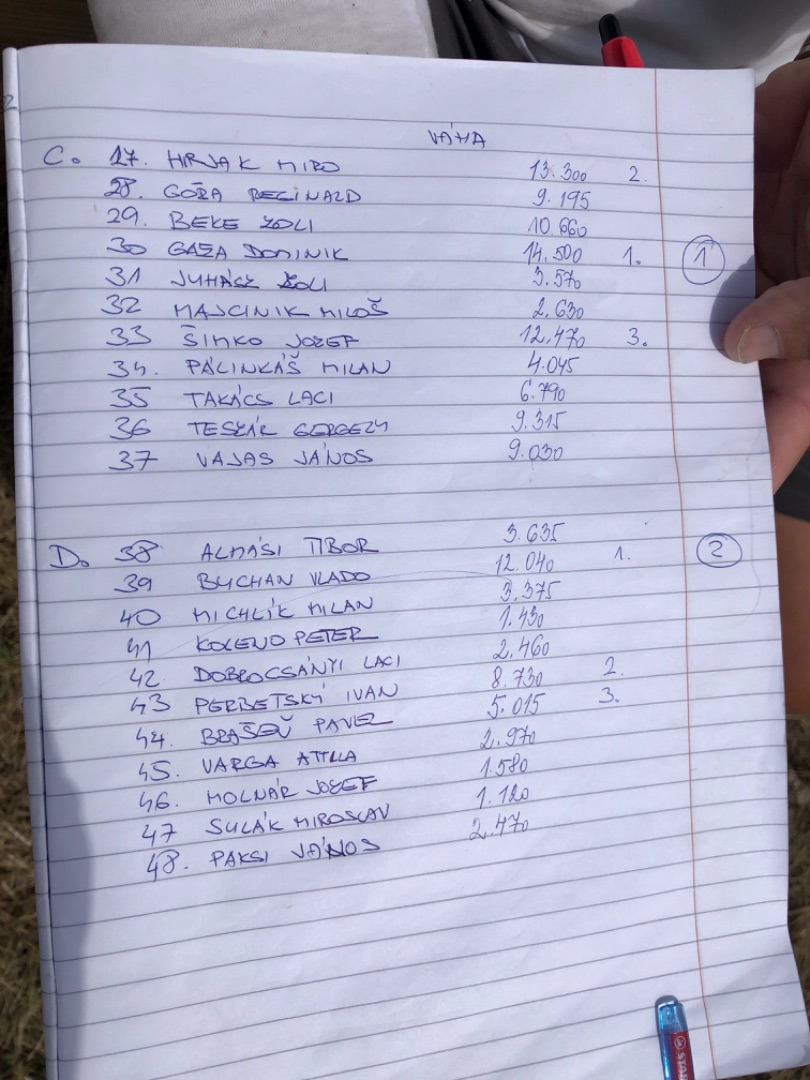 VÁHA
C. 27. HRJAK MIRO 13.300 2.
28. GÓZA REGINALD 9.195
29. BEKE ZOLI 10.660
30 GAZA DOMINIK 14.500 1. 1
31 JUHÁSZ ZOLI 3.570
32 MAJCINIK MILOŠ 2.630
33 ŠIMKO JOZEF 12.470 3.
34. PÁLINKÁŠ MILAN 4.045
35 TAKÁCS LACI 6.790
36 GERGELY 9.315
37 VAJAS JÁNOS 9.030
D. 38 ALMÁSI TIBOR 3.635
39 BUCHAN VLADO 12.040 1. 2
40 MICHLÍK MILAN 3.375
41 KOLENO PETER 1.430
42 DOBROCSÁNYI LACI 2.460
43 PERBETSKÝ IVAN 8.730 2.
44. PAVEL 5.015 3.
45. VARGA ATTILA 2.970
46. MOLNÁR JOZEF 1.580
47 SULÁK MIROSLAV 1.120
48. PAKSI JÁNOS 2.470